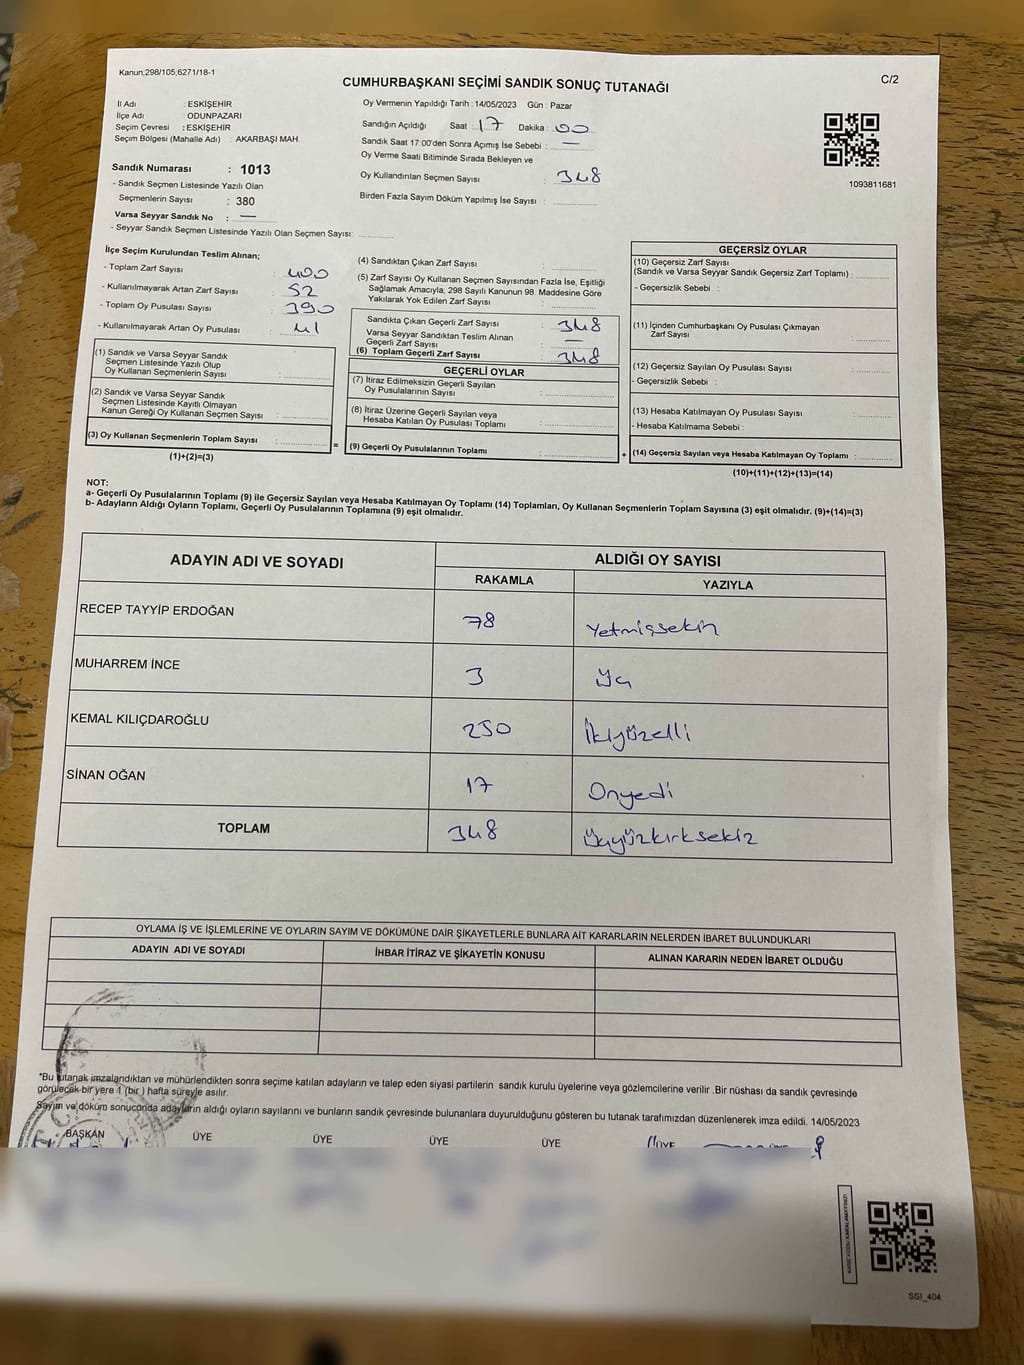 Kanun;298/105,6271/18-1
CUMHURBAŞKANI SEÇİMİ SANDIK SONUÇ TUTANAĞI
C/2
İl Adı : ESKİŞEHİR
İlçe Adı : ODUNPAZARI
Seçim Çevresi : ESKİŞEHİR
Seçim Bölgesi (Mahalle Adı) : AKARBAŞI MAH.
Sandık Numarası : 1013
- Sandık Seçmen Listesinde Yazılı Olan
Seçmenlerin Sayısı : 380
Varsa Seyyar Sandık No : —
- Seyyar Sandık Seçmen Listesinde Yazılı Olan Seçmen Sayısı:
Oy Vermenin Yapıldığı Tarih : 14/05/2023 Gün : Pazar
Sandığın Açıldığı Saat : 17 Dakika : 00
Sandık Saat 17:00'den Sonra Açımış İse Sebebi : —
Oy Verme Saati Bitiminde Sırada Bekleyen ve
Oy Kullandırılan Seçmen Sayısı : 348
Birden Fazla Sayım Döküm Yapılmış İse Sayısı :
1093811681
İlçe Seçim Kurulundan Teslim Alınan;
- Toplam Zarf Sayısı : 400
- Kullanılmayarak Artan Zarf Sayısı : 52
- Toplam Oy Pusulası Sayısı : 390
- Kullanılmayarak Artan Oy Pusulası : 41
(1) Sandık ve Varsa Seyyar Sandık
Seçmen Listesinde Yazılı Olup
Oy Kullanan Seçmenlerin Sayısı :
(2) Sandık ve Varsa Seyyar Sandık
Seçmen Listesinde Kayıtlı Olmayan
Kanun Gereği Oy Kullanan Seçmen Sayısı :
(3) Oy Kullanan Seçmenlerin Toplam Sayısı :
(1)+(2)=(3)
=
(4) Sandıktan Çıkan Zarf Sayısı :
(5) Zarf Sayısı Oy Kullanan Seçmen Sayısından Fazla İse, Eşitliği
Sağlamak Amacıyla; 298 Sayılı Kanunun 98. Maddesine Göre
Yakılarak Yok Edilen Zarf Sayısı :
Sandıkta Çıkan Geçerli Zarf Sayısı : 348
Varsa Seyyar Sandıktan Teslim Alınan
Geçerli Zarf Sayısı : —
(6) Toplam Geçerli Zarf Sayısı : 348
GEÇERLİ OYLAR
(7) İtiraz Edilmeksizin Geçerli Sayılan
Oy Pusulalarının Sayısı :
(8) İtiraz Üzerine Geçerli Sayılan veya
Hesaba Katılan Oy Pusulaları Toplamı :
(9) Geçerli Oy Pusulalarının Toplamı :
+
GEÇERSİZ OYLAR
(10) Geçersiz Zarf Sayısı
(Sandık ve Varsa Seyyar Sandık Geçersiz Zarf Toplamı) :
- Geçersizlik Sebebi :
(11) İçinden Cumhurbaşkanı Oy Pusulası Çıkmayan
Zarf Sayısı :
(12) Geçersiz Sayılan Oy Pusulası Sayısı :
- Geçersizlik Sebebi :
(13) Hesaba Katılmayan Oy Pusulası Sayısı :
- Hesaba Katılmama Sebebi :
(14) Geçersiz Sayılan veya Hesaba Katılmayan Oy Toplamı :
(10)+(11)+(12)+(13)=(14)
NOT:
a- Geçerli Oy Pusulalarının Toplamı (9) ile Geçersiz Sayılan veya Hesaba Katılmayan Oy Toplamı (14) Toplamları, Oy Kullanan Seçmenlerin Toplam Sayısına (3) eşit olmalıdır. (9)+(14)=(3)
b- Adayların Aldığı Oyların Toplamı, Geçerli Oy Pusulalarının Toplamına (9) eşit olmalıdır.
ADAYIN ADI VE SOYADI
ALDIĞI OY SAYISI
RAKAMLA YAZIYLA
RECEP TAYYİP ERDOĞAN 78 Yetmişsekiz
MUHARREM İNCE 3 Üç
KEMAL KILIÇDAROĞLU 250 İkiyüzelli
SİNAN OĞAN 17 Onyedi
TOPLAM 348 Üçyüzkırksekiz
OYLAMA İŞ VE İŞLEMLERİNE VE OYLARIN SAYIM VE DÖKÜMÜNE DAİR ŞİKAYETLERLE BUNLARA AİT KARARLARIN NELERDEN İBARET BULUNDUKLARI
ADAYIN ADI VE SOYADI İHBAR İTİRAZ VE ŞİKAYETİN KONUSU ALINAN KARARIN NEDEN İBARET OLDUĞU
*Bu tutanak imzalandıktan ve mühürlendikten sonra seçime katılan adayların ve talep eden siyasi partilerin sandık kurulu üyelerine veya gözlemcilerine verilir .Bir nüshası da sandık çevresinde
görülecek bir yere 1 (bir ) hafta süreyle asılır.
Sayım ve döküm sonucunda adayların aldığı oyların sayılarını ve bunların sandık çevresinde bulunanlara duyurulduğunu gösteren bu tutanak tarafımızdan düzenlenerek imza edildi. 14/05/2023
BAŞKAN ÜYE ÜYE ÜYE ÜYE ÜYE
SSI_404